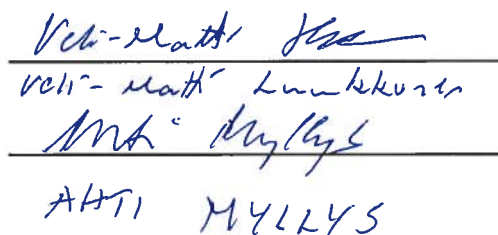 Veli-Matti
Veli-Matti Luukkonen
Ahti Myllys
AHTI MYLLYS